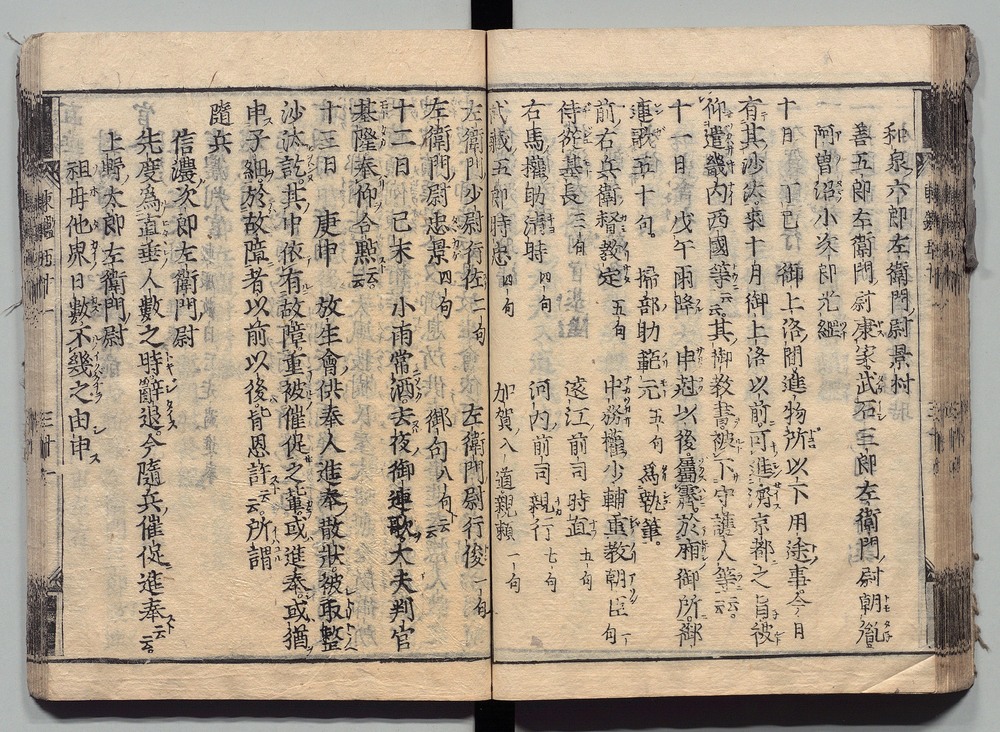 和泉六郎左衛門尉景村
善五郎左衛門尉康家武石三郎左衛門尉朝胤
阿曽沼小次郎光綱
十日 丁巳 御上洛間進物所以下用途事今日
有其沙汰来十月御上洛以前可進済京都之旨被
仰遣畿内西國等云云其御教書被下守護人等云云
十一日 戊午雨降 申尅以後属霽於廂御所御
連歌五十句 掃部助範元 五句 為執筆
前右兵衛督教定 五句 中務権少輔重教朝臣 句
侍従基長 三句 遠江前司時直 五句
右馬権助清時 四句 河内前司親行 七句
武蔵五郎時忠 四句 加賀入道親願 一句
左衛門少尉行佐 二句 左衛門尉行俊 一句
左衛門尉忠景 四句 御句八句云云
十二日 己未 小雨常洒去夜御連歌大夫判官
基隆奉仰合點云云
十三日 庚申 放生會供奉人進奉散状被取整
沙汰訖其中依有故障重被催促之輩或進奉或猶
申子細於故障者以前以後皆恩許云云所謂
隨兵
信濃次郎左衛門尉
先度為直垂人數之時辭退今隨兵催促進奉云云
上野太郎左衛門尉
祖母他界日數不幾之由申